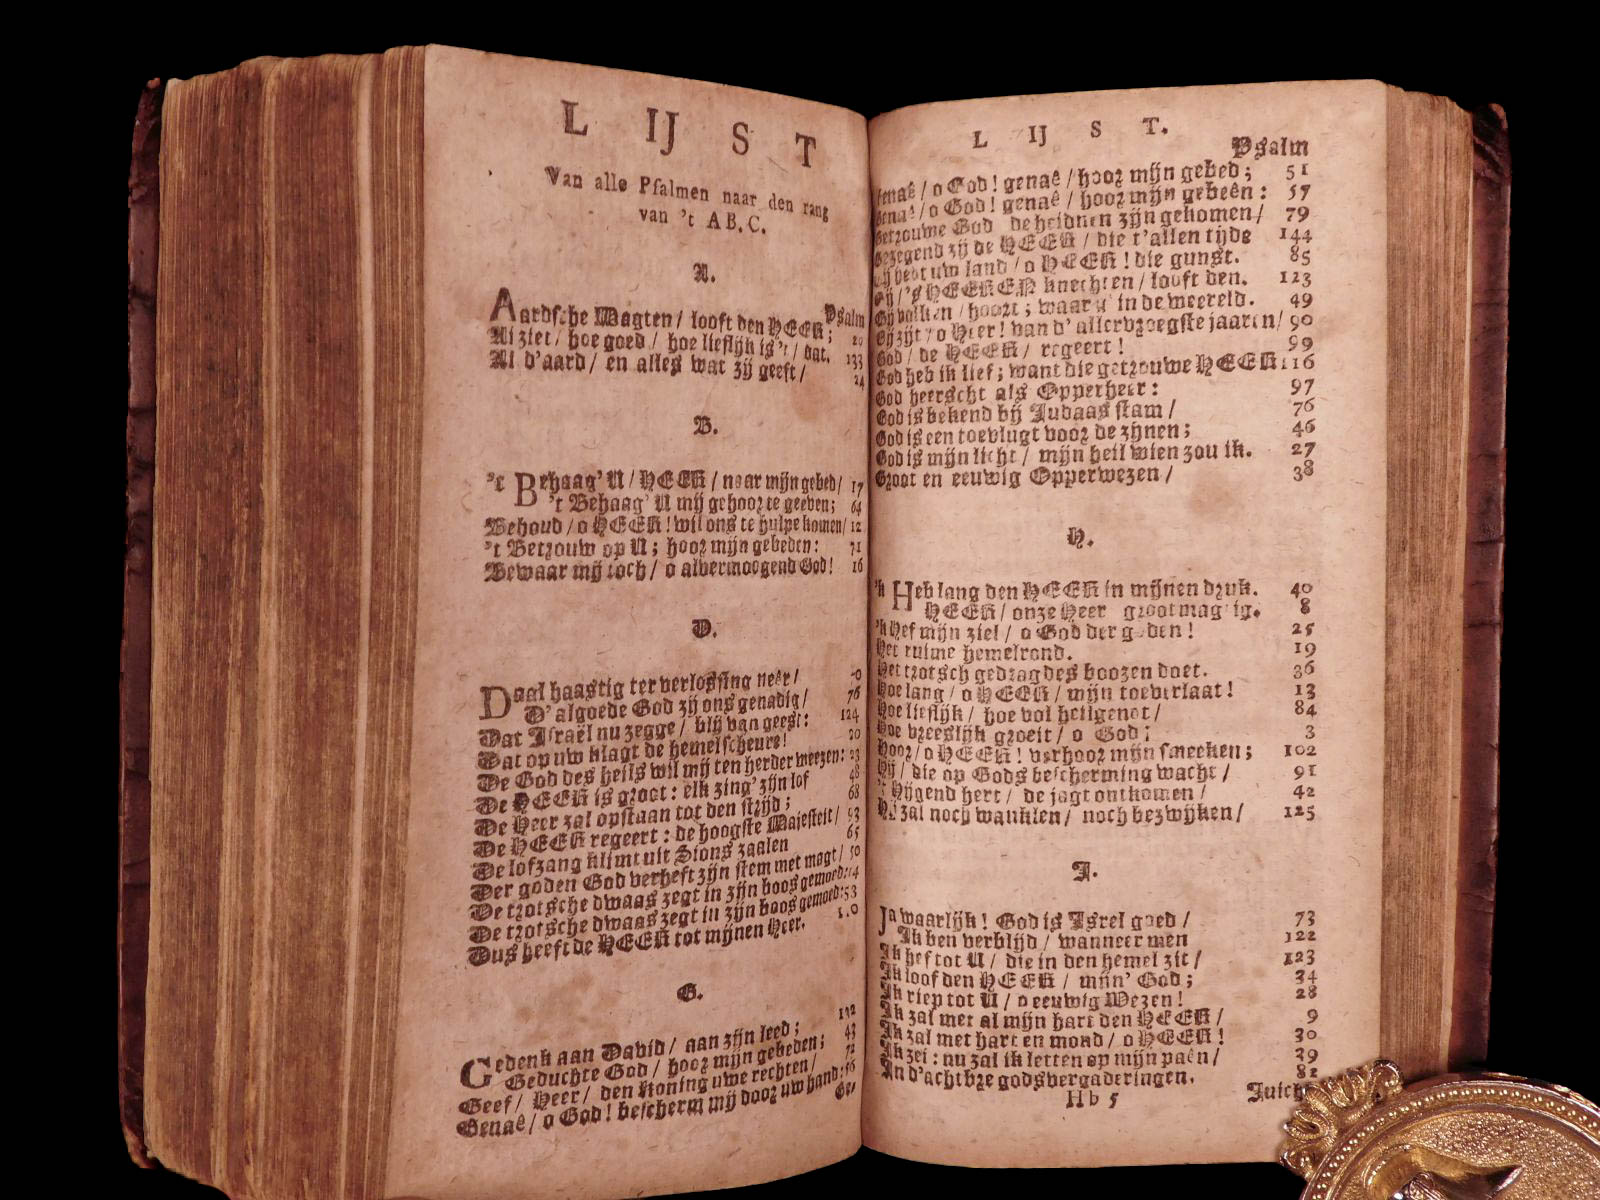 LIJST
Van alle Psalmen naar den rang
van 't AB.C.
A.
Psalm
Aardsche Magten / looft den HEER;
Ai ziet / hoe goed / hoe lieflijk is 't / dat. 133
Al d'aard / en alles wat zij geeft / 24
B.
't Behaag' U / HEER / naar mijn gebed / 17
't Behaag' U mij gehoor te geeven; 64
Behoud / o HEER! wil ons te hulpe komen / 12
't Betrouw op U; hoor mijn gebeden: 71
Bewaar mij toch / o albermoogend God! 16
D.
Daal haastig ter verlossing neêr /
D'algoede God zij ons genadig / 76
Dat Israël nu zegge / blij van geest: 124
Dat op uw klagt de hemel scheure! 20
De God des heils wil mij ten herder weezen: 23
De HEER is groot: elk zing' zijn lof 48
De Heer zal opstaan tot den strijd; 68
De HEER regeert: de hoogste Majesteit / 93
De lofzang klimt uit Sions zaalen 65
Der goden God verheft zijn stem met magt / 50
De trotsche dwaas zegt in zijn boos gemoed: 14
De trotsche dwaas zegt in zijn boos gemoed: 53
Dus heeft de HEER tot mijnen Heer. 110
G.
Gedenk aan David / aan zijn leed; 132
Geduchte God / hoor mijn gebeden; 43
Geef / Heer / den Koning uwe rechten / 72
Genaê / o God! bescherm mij door uw hand; 56
Ge-
LIJST.
Psalm
Genaê / o God! genaê / hoor mijn gebed; 51
Genaê / o God! genaê / hoor mijn gebeên: 57
Getrouwe God de heidnen zijn gekomen / 79
Gezegend zij de HEER / die t'allen tijde 144
Gij hebt uw land / o HEER! die gunst. 85
Gij / 's HEEREN knechten / looft den. 123
Gij volken / hoort; waar g' in de weereld. 49
Gij zijt / o Heer! van d' allervroegste jaaren / 90
God / de HEER / regeert! 99
God heb ik lief; want die getrouwe HEER 116
God heerscht als Opperheer: 97
God is bekend bij Judaas stam / 76
God is een toevlugt voor de zijnen; 46
God is mijn licht / mijn heil wien zou ik. 27
Groot en eeuwig Opperwezen / 38
H.
'k Heb lang den HEER in mijnen druk. 40
HEER / onze Heer grootmagtig. 8
'k Hef mijn ziel / o God der goden! 25
Het ruime hemelrond. 19
Het trotsch gedrag des boozen doet. 36
Hoe lang / o HEER / mijn toeverlaat! 13
Hoe lieflijk / hoe vol heilgenot / 84
Hoe vreeslijk groeit / o God; 3
Hoor / o HEER! verhoor mijn smeeken; 102
Hij / die op Gods bescherming wacht / 91
't Hijgend hert / de jagt ontkomen / 42
Hij zal noch wanklen / noch bezwijken / 125
I.
Ja waarlijk! God is Isrel goed / 73
Ik ben verblijd / wanneer men 122
Ik hef tot U / die in den hemel zit / 123
Ik loof den HEER / mijn' God; 34
Ik riep tot U / o eeuwig Wezen! 28
Ik zal met al mijn hart den HEER / 9
Ik zal met hart en mond / o HEER! 30
Ik zei: nu zal ik letten op mijn paên / 39
In d'achtbre godsvergaderingen. 82
Hb 5
Juich